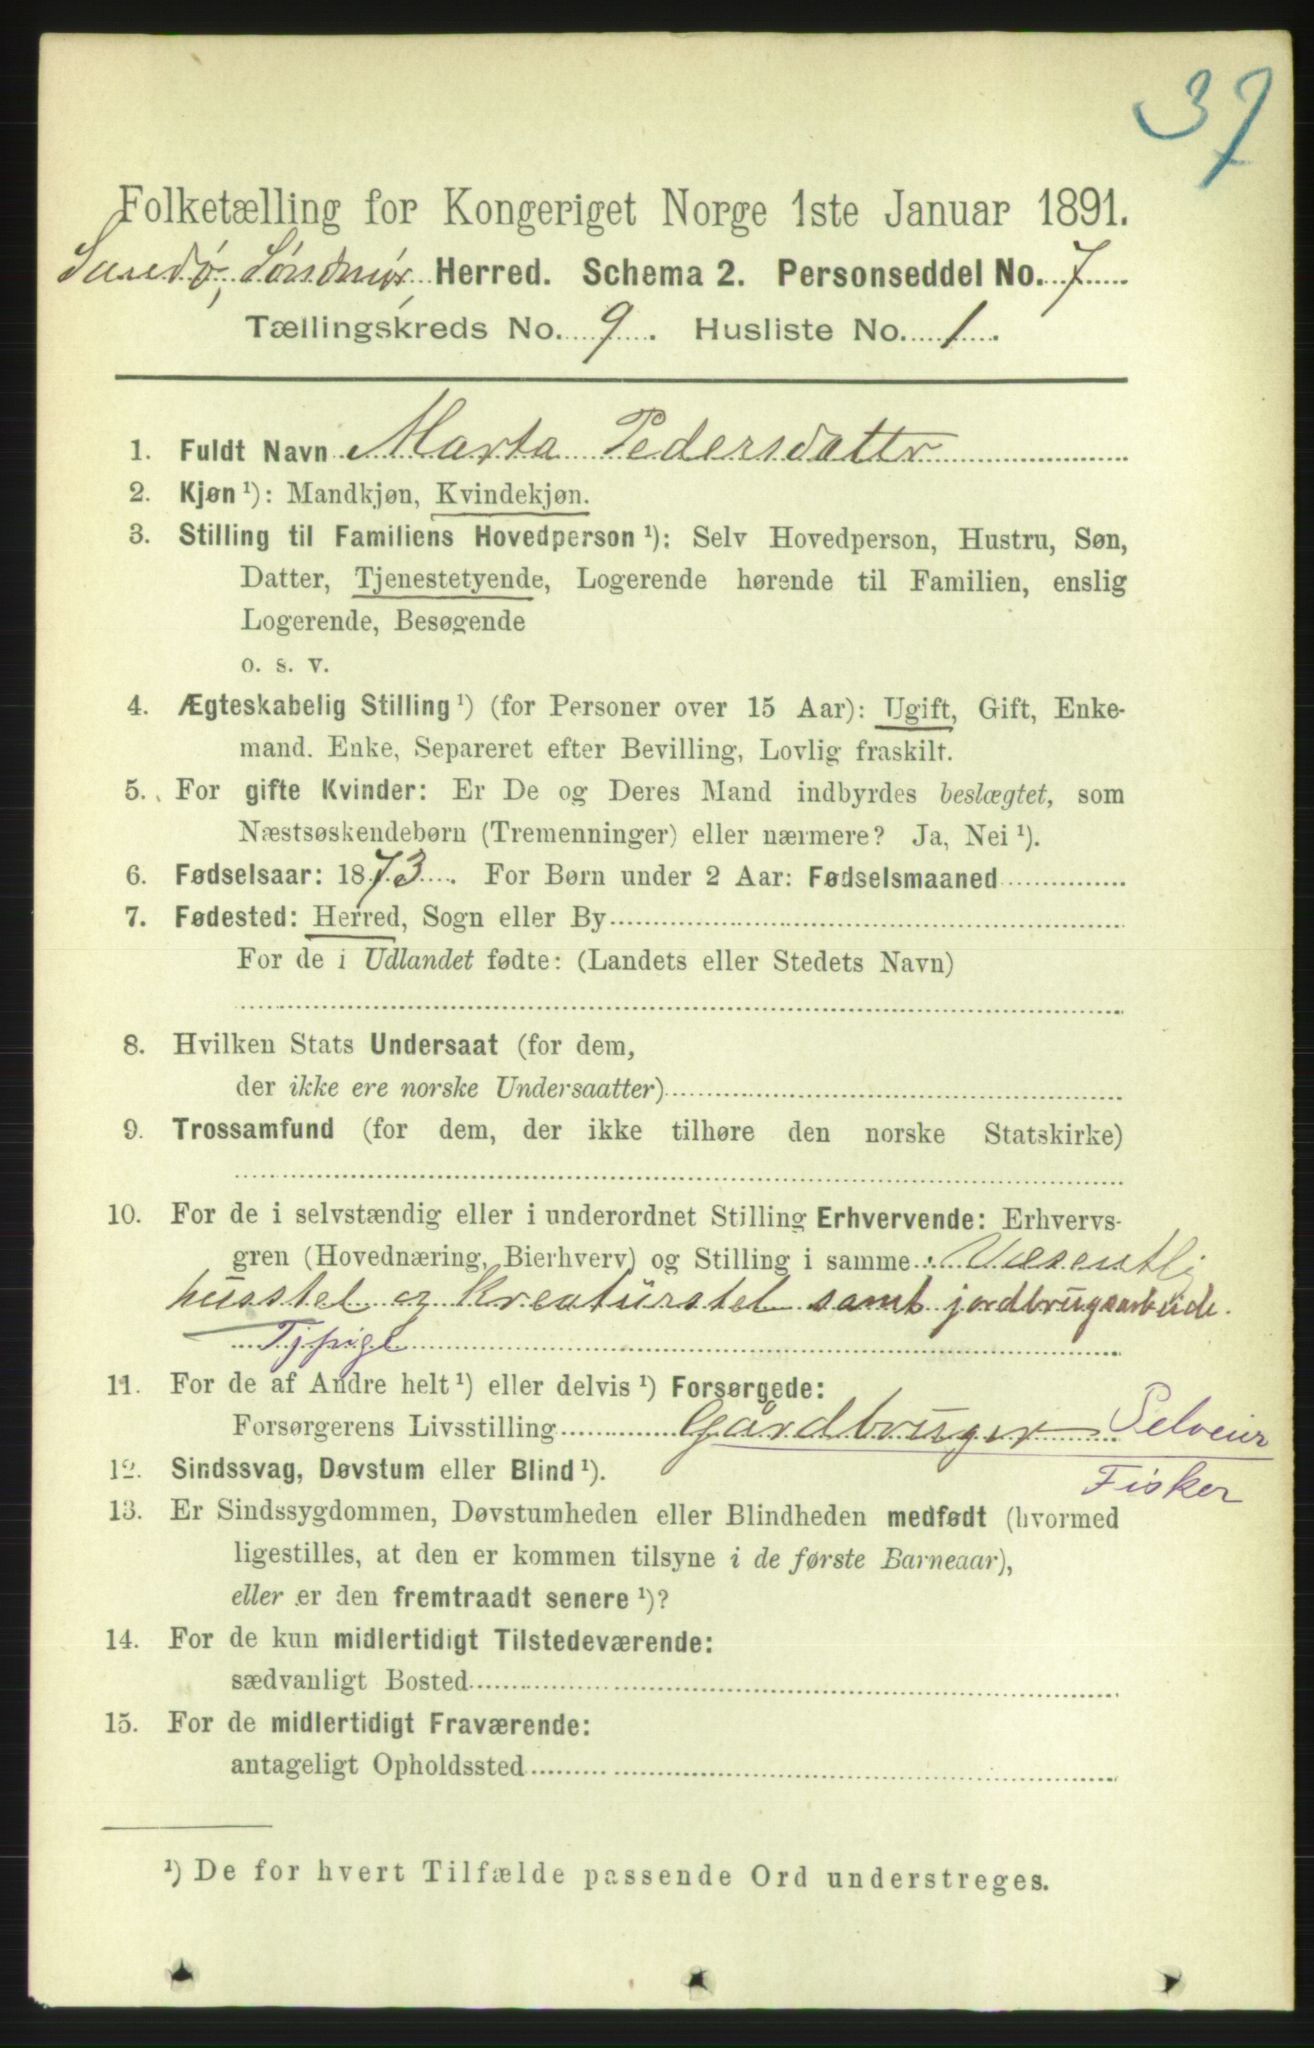 37
Folketælling for Kongeriget Norge 1ste Januar 1891.
Sandø, Søndmør, Herred. Schema 2. Personseddel No. 7
Tællingskreds No. 9. Husliste No. 1.
1. Fuldt Navn Marta Pedersdattr
2. Kjøn ¹): Mandkjøn, Kvindekjøn.
3. Stilling til Familiens Hovedperson ¹): Selv Hovedperson, Hustru, Søn,
Datter, Tjenestetyende, Logerende hørende til Familien, enslig
Logerende, Besøgende
o. s. v.
4. Ægteskabelig Stilling ¹) (for Personer over 15 Aar): Ugift, Gift, Enke-
mand. Enke, Separeret efter Bevilling, Lovlig fraskilt.
5. For gifte Kvinder: Er De og Deres Mand indbyrdes beslægtet, som
Næstsøskendebørn (Tremenninger) eller nærmere? Ja, Nei ¹).
6. Fødselsaar: 1873. For Børn under 2 Aar: Fødselsmaaned
7. Fødested: Herred, Sogn eller By
For de i Udlandet fødte: (Landets eller Stedets Navn)
8. Hvilken Stats Undersaat (for dem,
der ikke ere norske Undersaatter)
9. Trossamfund (for dem, der ikke tilhøre den norske Statskirke)
10. For de i selvstændig eller i underordnet Stilling Erhvervende: Erhvervs-
gren (Hovednæring, Bierhverv) og Stilling i samme: Væsentlig
husstel og Kreaturstel samt jordbrugsarbeide.
Tjpige
11. For de af Andre helt ¹) eller delvis ¹) Forsørgede:
Forsørgerens Livsstilling Gårdbruger Selveier
Fisker
12. Sindssvag, Døvstum eller Blind ¹).
13. Er Sindssygdommen, Døvstumheden eller Blindheden medfødt (hvormed
ligestilles, at den er kommen tilsyne i de første Barneaar),
eller er den fremtraadt senere ¹)?
14. For de kun midlertidigt Tilstedeværende:
sædvanligt Bosted
15. For de midlertidigt Fraværende:
antageligt Opholdssted
¹) De for hvert Tilfælde passende Ord understreges.